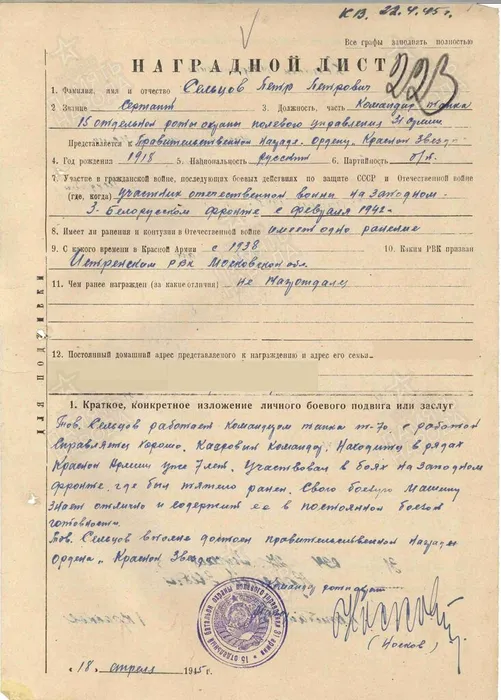 К.З. 22.4.45г.
Все графы заполнять полностью
НАГРАДНОЙ ЛИСТ
223
1. Фамилия, имя и отчество Сельцов Петр Петрович
2 Звание Сержант 3. Должность, часть Командир танка
15 отдельной роты охраны полевого управления 31 армии
Представляется к Правительственной награде. Ордену „Красной Звезды
4. Год рождения 1918 5. Национальность русский 6. Партийность б/п.
7. Участие в гражданской войне, последующих боевых действиях по защите СССР и Отечественной войне
(где, когда) участник отечественной войны на Западном
3-Белорусском фронте с февраля 1942-
8. Имеет ли ранения и контузии в Отечественной войне имеет одно ранение
9. С какого времени в Красной Армии с 1938 10. Каким РВК призван
Истренским РВК Московской обл.
11. Чем ранее награжден (за какие отличия) не награждался
12. Постоянный домашний адрес представляемого к награждению и адрес его семьи
ДЛЯ ПОДШИВКИ
1. Краткое, конкретное изложение личного боевого подвига или заслуг
Тов. Сельцов работает Командиром танка т-70, с работой
справляется хорошо. Кадровый Командир. Находится в рядах
Красной Армии уже 7 лет. Участвовал в боях на Западном
фронте, где был тяжело ранен. Свою боевую Машину
знает отлично и содержит её в постоянной боевой
готовности.
Тов. Сельцов вполне достоин правительственной награды
Ордена „Красной Звезды
Командир роты
(Носков)
15 отдельный батальон охраны полевого управления 31 армии
„18" апреля 1945 г.